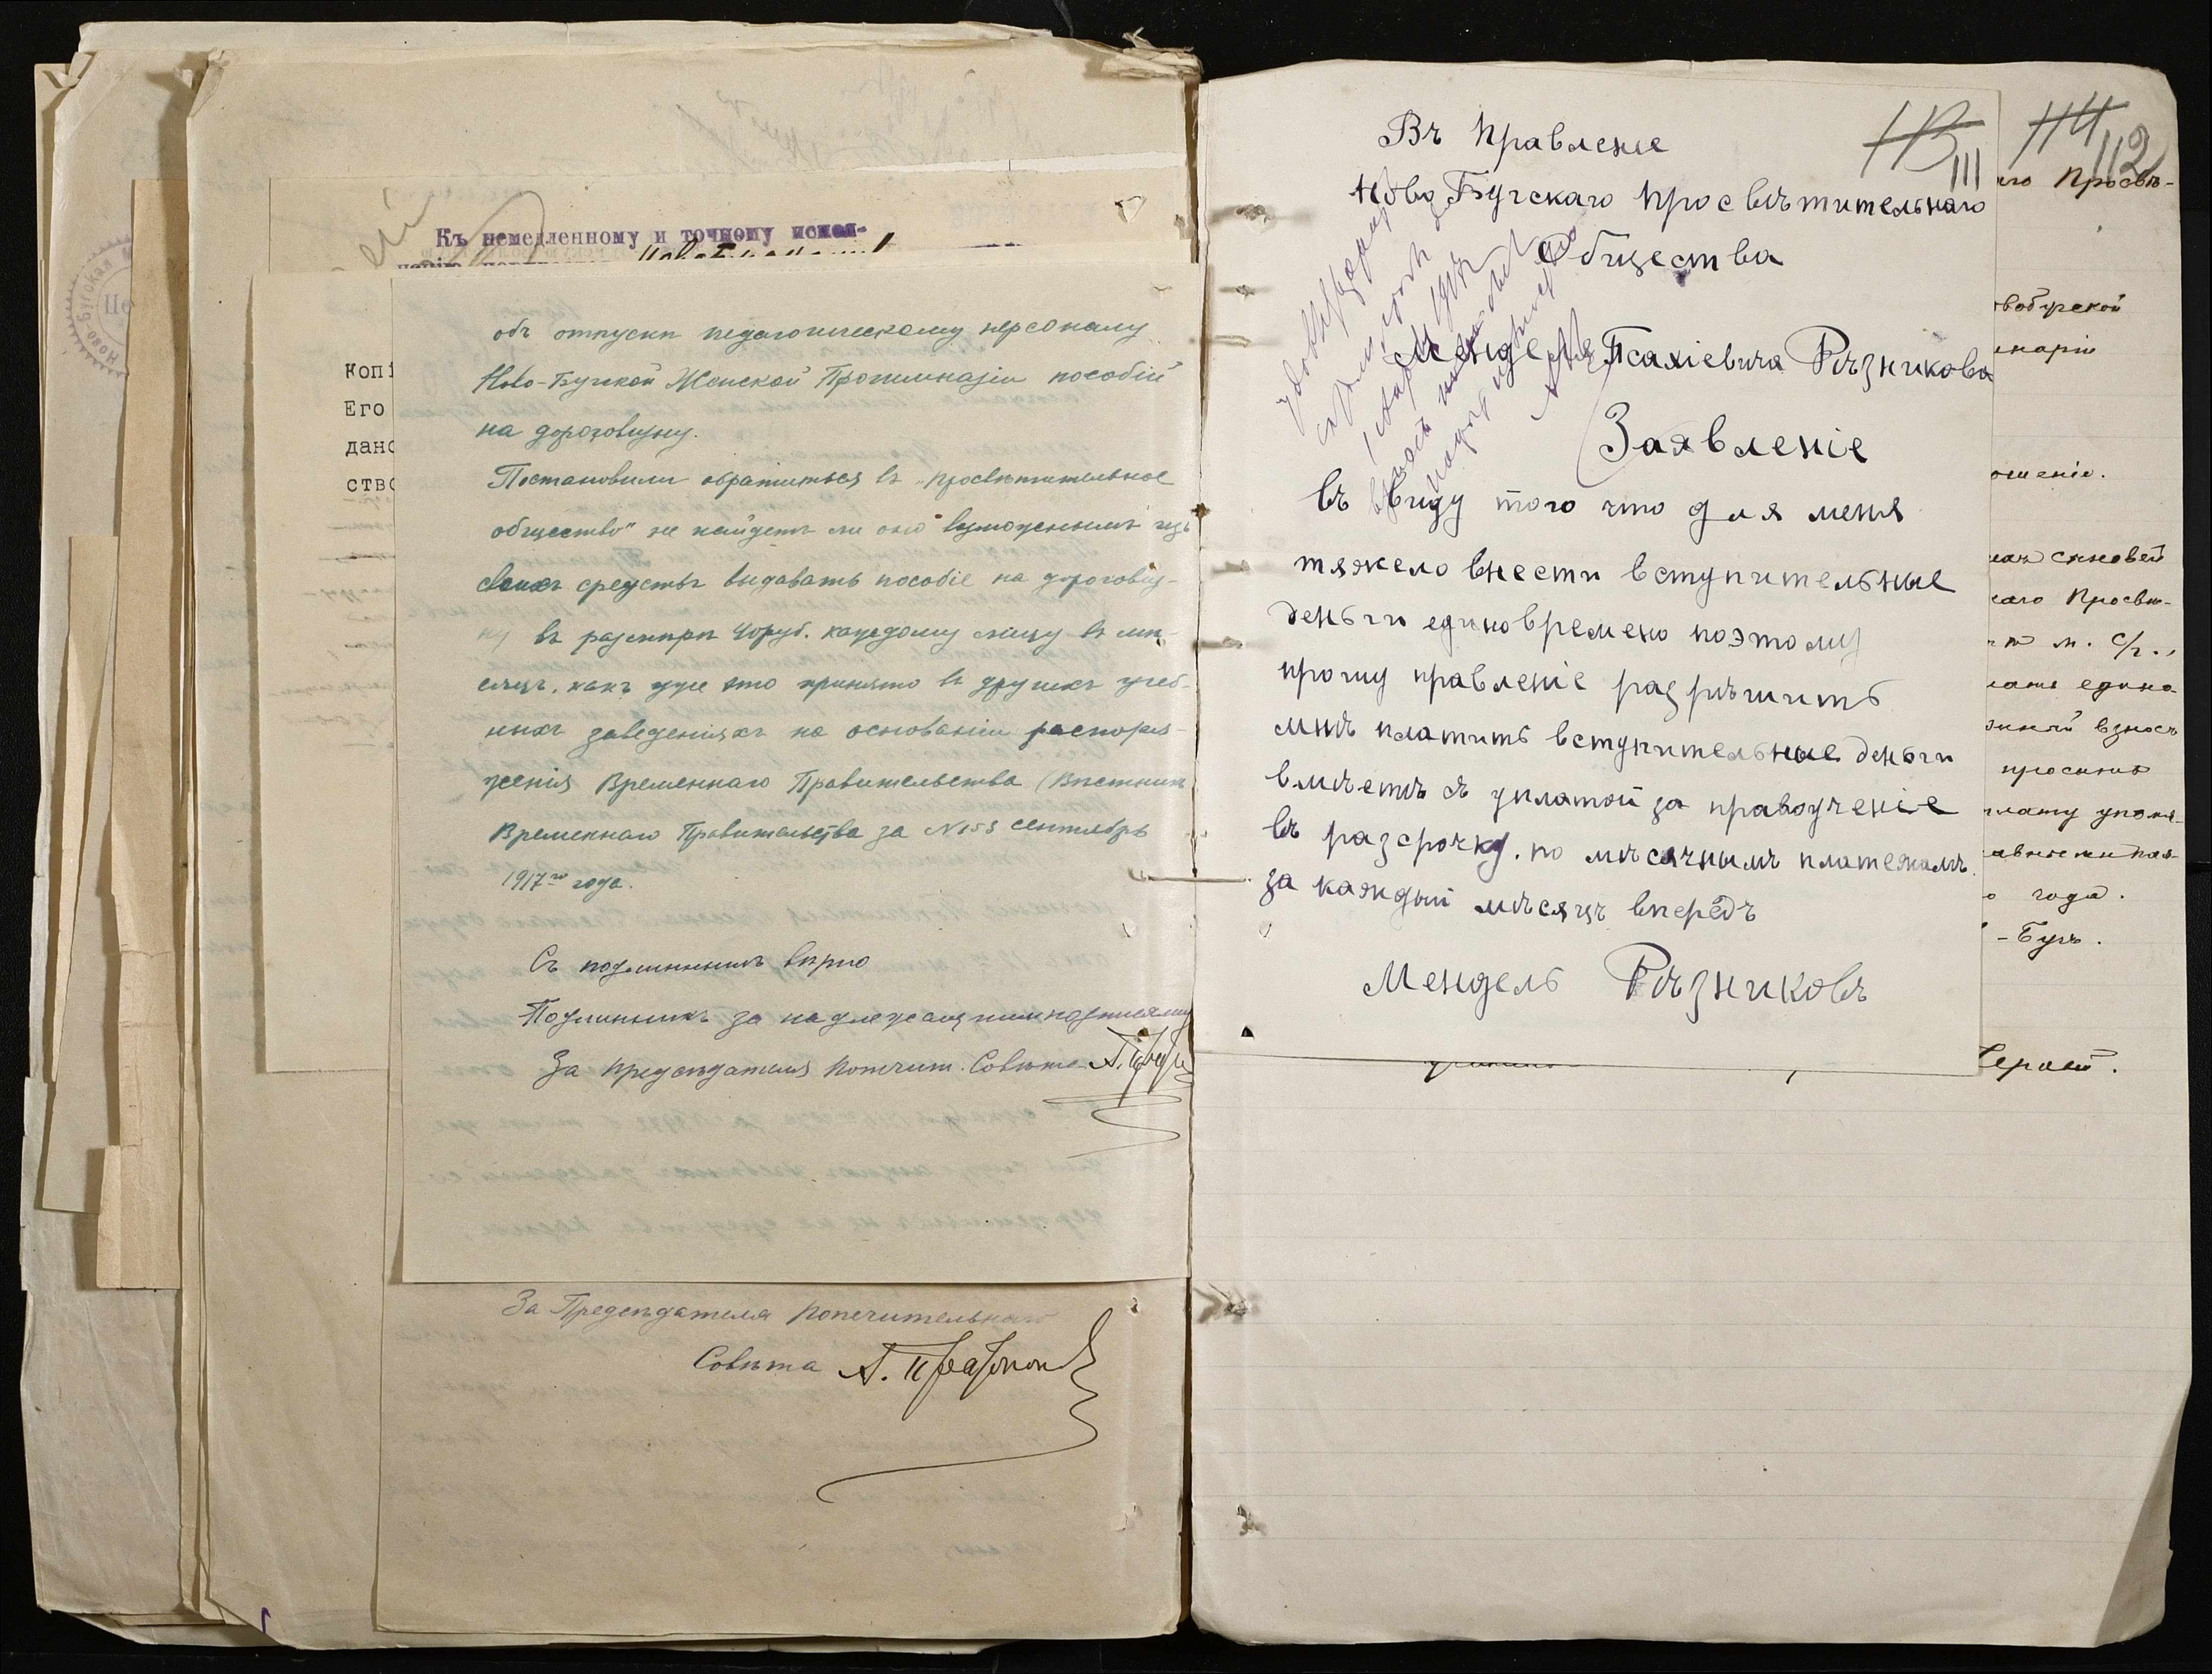 Къ немедленному и точному испол-
Копі
Его
дано
ство
объ отпускѣ педагогическому персоналу
Ново-Бугской Женской Прогимназіи пособій
на дороговизну.
Постановили обратиться въ „Просвѣтительное
общество" не найдетъ ли оно возможнымъ изъ
своихъ средствъ выдавать пособіе на дорогови-
ну въ размѣрѣ 40 руб. каждому лицу въ мѣ-
сяцъ, какъ уже это принято въ другихъ учеб-
ныхъ заведеніяхъ на основаніи распоря-
женія Временнаго Правительства (Вѣстникъ
Временнаго Правительства за № 153 сентябрь
1917го года.
Съ подлиннымъ вѣрно
Подлинникъ за надлежащими подписями
За предсѣдателя Попечит. Совѣта
За Предсѣдателя Попечительнаго
Совѣта А.
Въ Правленіе
Ново Бугскаго Просвѣтительнаго
Общества
Менделя Псахіевича Рѣзникова
Заявленіе
въ виду того что для меня
тяжело внести вступительные
деньги единовремено поэтому
прошу правленіе разрѣшить
мнѣ платить вступительные деньги
вмѣстѣ съ уплатой за правоученіе
въ разсрочку. по мѣсячнымъ платежамъ.
за каждый мѣсяцъ впередъ
Мендель Рѣзниковъ
111
114
112
аго Просвѣ-
вобугской
ошеніе.
сыновей
каго Просвѣ-
м. с/г.,
едино
взносъ
просимъ
плату упомя-
года.
-Бугъ.